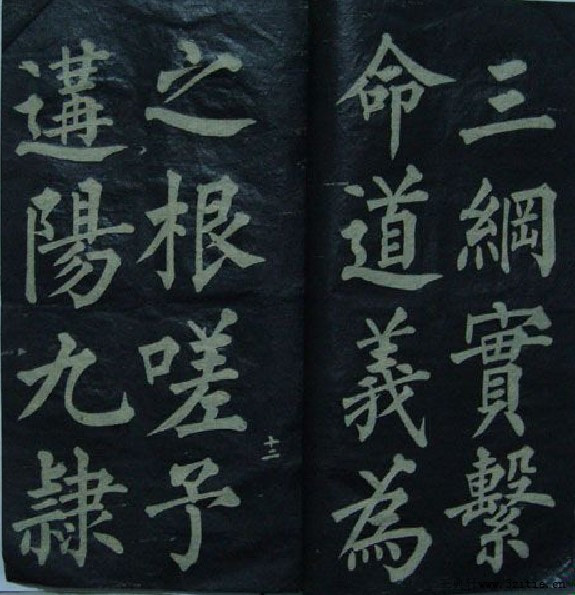 三綱實繫
命道義為
之根嗟予
遘陽九隷
十二